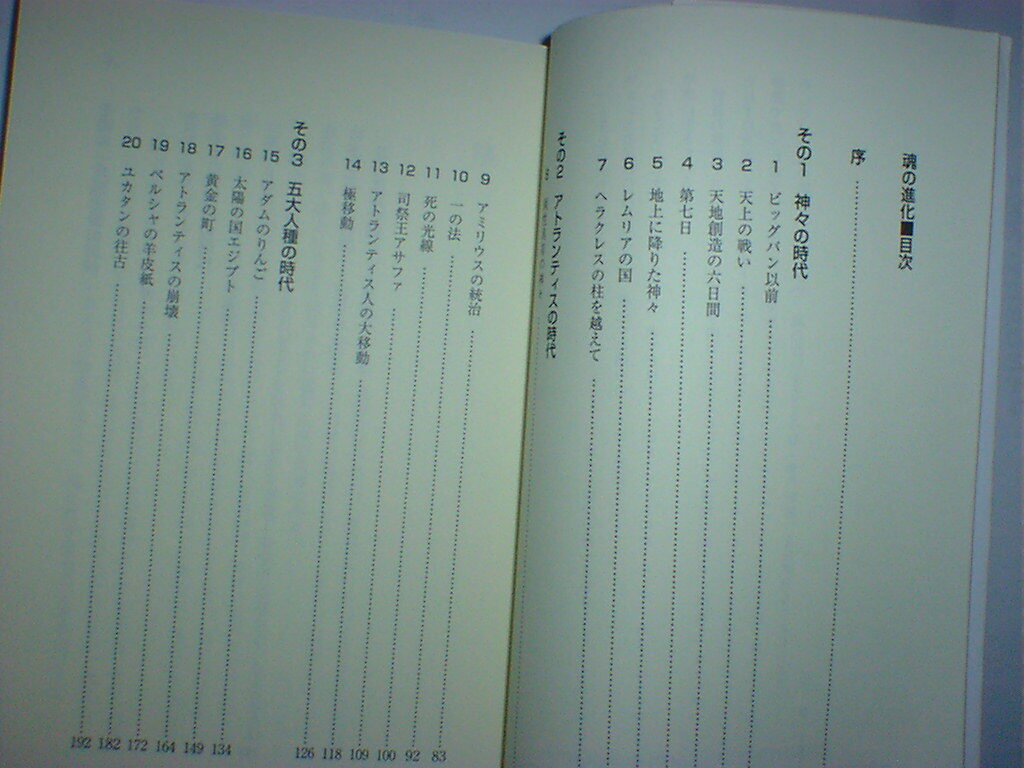 魂の進化■目次
序
その1 神々の時代
1 ビッグバン以前
2 天上の戦い
3 天地創造の六日間
4 第七日
5 地上に降りた神々
6 レムリアの国
7 ヘラクレスの柱を越えて
その2 アトランティスの時代
8
9 アミリウスの統治 83
10 一の法 92
11 死の光線 100
12 司祭王アサファ 109
13 アトランティス人の大移動 118
14 極移動 126
その3 五大人種の時代
15 アダムのりんご 134
16 太陽の国エジプト 149
17 黄金の町 164
18 アトランティスの崩壊 172
19 ペルシャの羊皮紙 182
20 ユカタンの往古 192